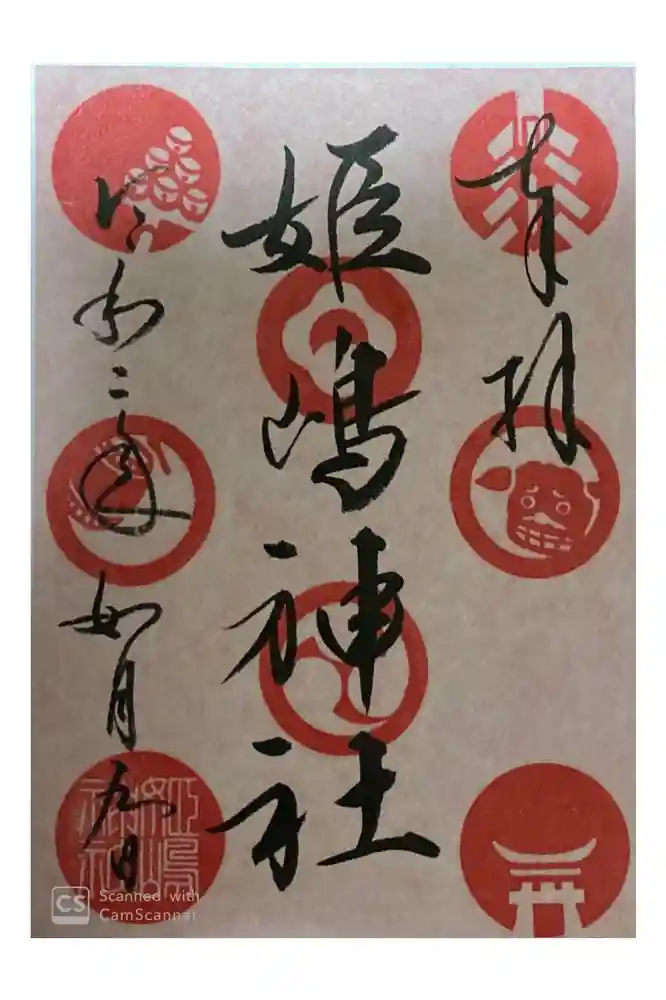 奉拝
姫嶋神社
令和二年 如月九日
姫嶋
神社
CS Scanned with
CamScanner